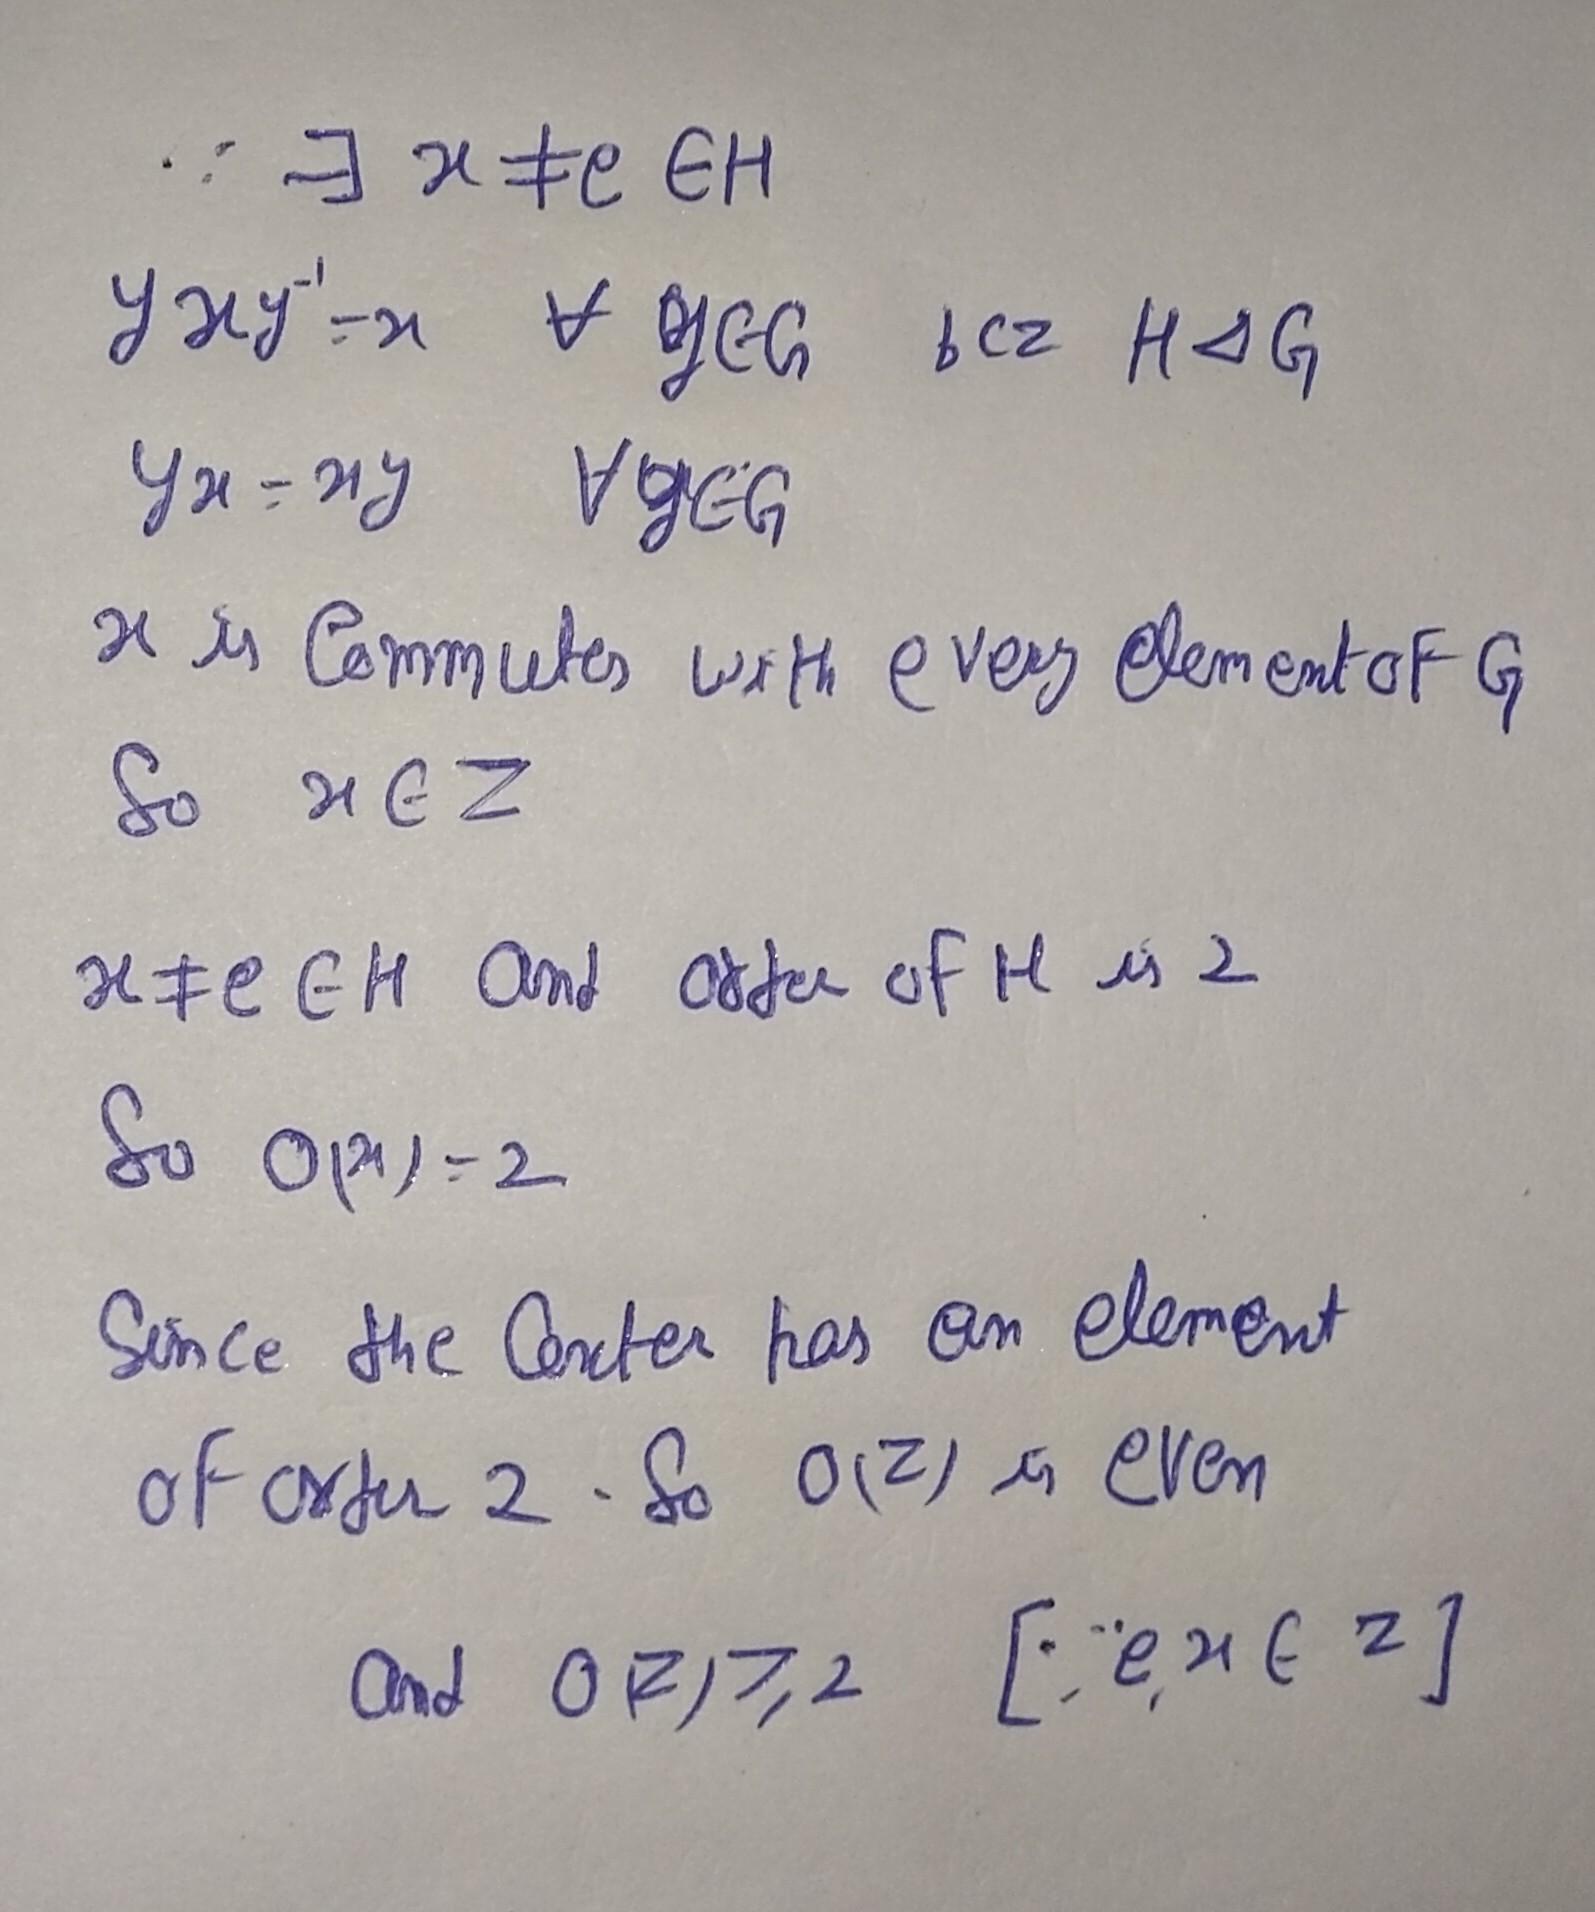 ∵ ∃ x ≠ e ∈ H
yxy⁻¹ = x ∀ y ∈ G bcz H ⊲ G
yx = xy ∀ y ∈ G
x is Commutes with every element of G
So x ∈ Z
x ≠ e ∈ H and order of H is 2
So O(x) = 2
Since the Center has an element
of order 2. So O(Z) is even
and O(Z) ≥ 2 [∵ e, x ∈ Z]